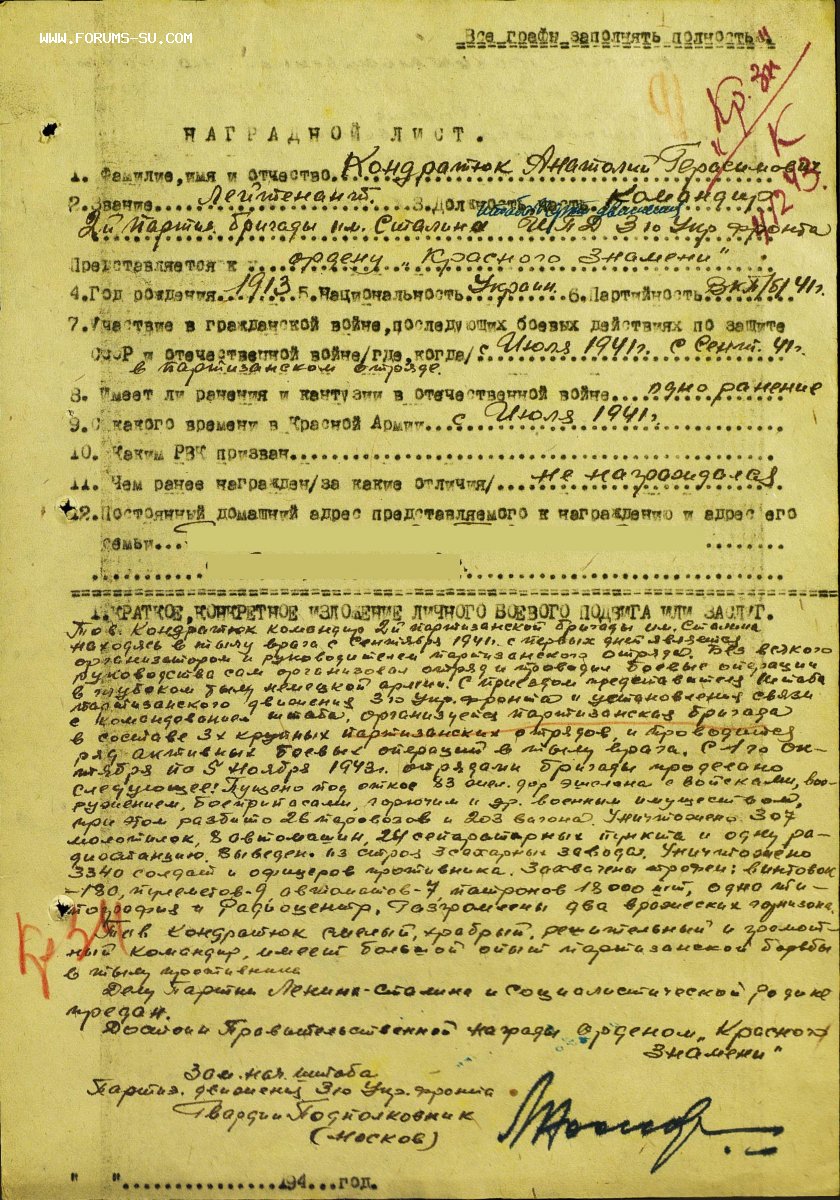 WWW.FORUMS-SU.COM
Все графы заполнять полностью
Кр. Зн
К
НАГРАДНОЙ ЛИСТ.
1. Фамилие, имя и отчество. Кондратюк Анатолий Герасимович
2. Звание..... Лейтенант. 3. Должность, часть Командир
2й Партиз. бригады им. Сталина ШПД 3го Укр. фронта
Представляется к ордену „Красного Знамени"
4. Год рождения 1913 5. Национальность Украин. 6. Партийность ВКП/б/ 41г.
7. Участие в гражданской войне, последующих боевых действиях по защите
СССР и отечественной войне/где, когда/ с Июля 1941г. с Сент. 41г.
в партизанском отряде.
8. Имеет ли ранения и кантузии в отечественной войне.... одно ранение
9. С какого времени в Красной Армии... с Июля 1941г.
10. Каким РВК призван
11. Чем ранее награжден/за какие отличия/... не награждался
12. Постоянный домашний адрес представляемого к награждению и адрес его
семьи...
1. КРАТКОЕ, КОНКРЕТНОЕ ИЗЛОЖЕНИЕ ЛИЧНОГО БОЕВОГО ПОДВИГА ИЛИ ЗАСЛУГ.
Тов. Кондратюк командир 2й партизанской бригады им. Сталина
находясь в тылу врага с Сентября 1941г. с первых дней является
организатором и руководителем партизанского отряда. Без всякого
руководства сам организовал отряд и проводил боевые операции
в глубоком тылу немецкой армии. С приездом представителя Штаба
партизанского движения 3го Укр. фронта и установления связи
с командованием штаба, организуется партизанская бригада
в составе 3х крупных партизанских отрядов, и проводится
ряд активных боевых операций в тылу врага. С 1го ок-
тября по 5 ноября 1943г. отрядами бригады проделано
следующее: Пущено под откос 83 жел. дор. эшелона с войсками, воо-
ружением, боеприпасами, горючим и др. военным имуществом,
при этом разбито 26 паровозов и 203 вагона. Уничтожено 307
молотилок, 8 автомашин, 24 сепараторных пункта и одну ра-
диостанцию. Выведен. из строя 3 сахарных завода. Уничтожено
3340 солдат и офицеров противника. Захвачены трофеи: винтовок
-180, пулеметов-9, автоматов-7 патронов 18000 шт, одна ти-
пография и Радиоцентр. Разгромлены два вражеских гарнизона.
Тов Кондратюк смелый, храбрый, решительный и грамот-
ный командир, имеет большой опыт партизанской борьбы
в тылу противника
Кр Зн
Делу Партии Ленина-Сталина и социалистической родине
предан.
Достоин Правительственной награды орденом „Красного
Знамени"
Зам. нач. штаба
Партиз. движения 3го Укр. фронта
Гвардии Подполковник
(Москов)
" "................194...год.